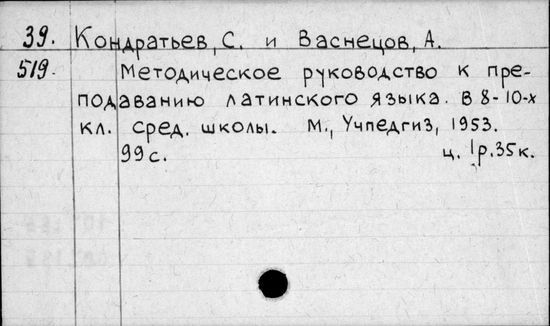 39. Кондратьев, С. и Васнецов, А.
519. Методическое руководство к пре-
подаванию латинского языка. В 8-10-х
кл. сред. школы. М., Учпедгиз, 1953.
99 с. ц. 1р.35к.